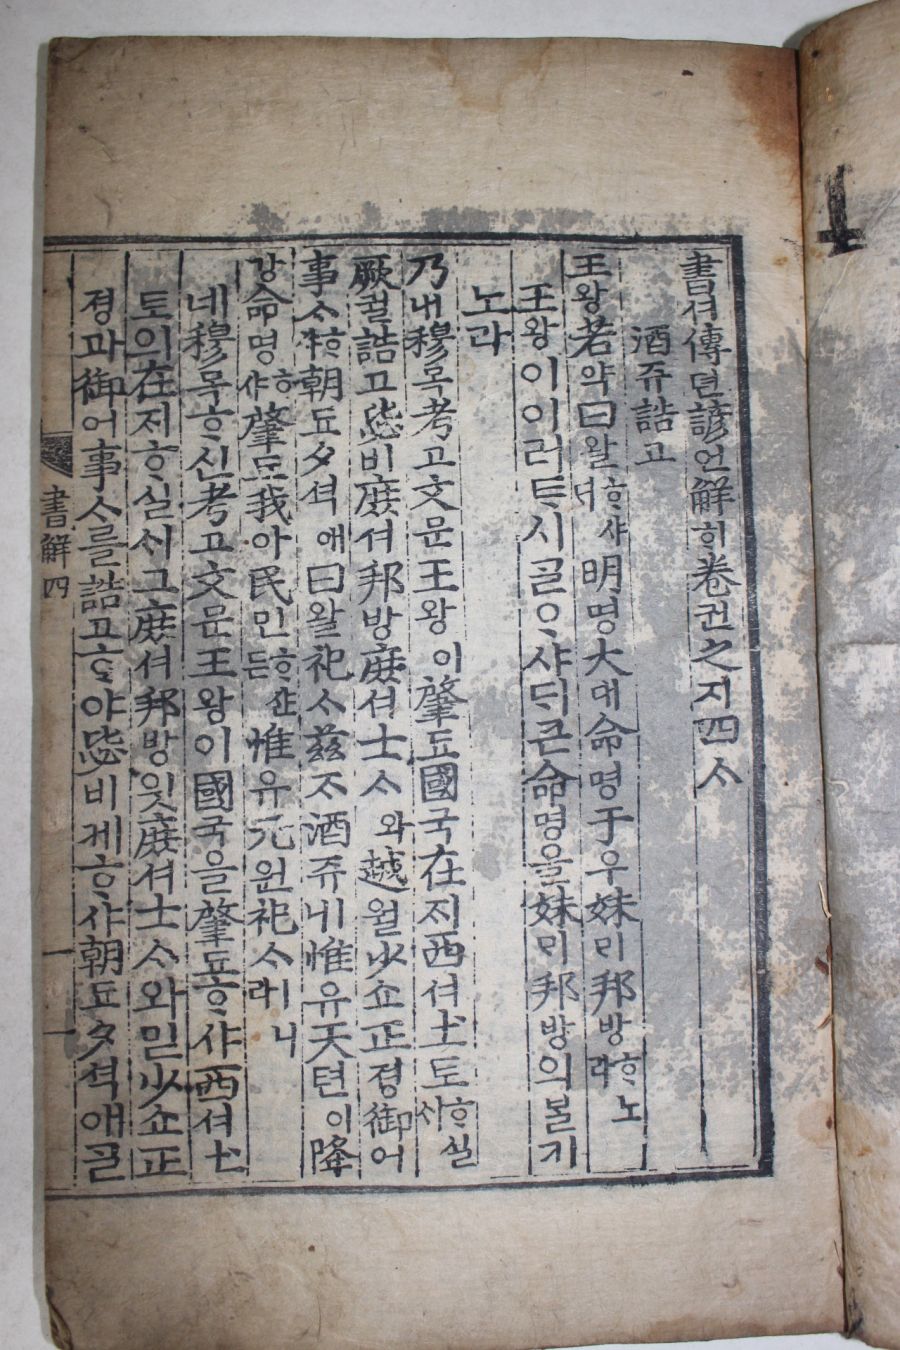 書셔傳뎐諺언解ᄒᆡ卷권之지四ᄉᆞ
酒쥬誥고
王왕若약曰왈ᄒᆞ샤ᄃᆡ明명大대命명于우妹ᄆᆡ邦방ᄒᆞ노라
王왕이이러ᄐᆞ시ᄀᆞᆯᄋᆞ샤ᄃᆡ큰命명을妹ᄆᆡ邦방의ᄇᆞᆯ기
노라
乃내穆목考고文문王왕이肇됴國국在ᄌᆡ西셔土토ᄒᆞ실ᄉᆡ
厥궐誥고毖비庶셔邦방庶셔士ᄉᆞ와越월少쇼正졍御어
事ᄉᆞᄒᆞ샤朝됴夕셕애曰왈祀ᄉᆞ玆ᄌᆞ酒쥬ㅣ니惟유天텬이降
강命명ᄒᆞ샤肇됴我아民민ᄒᆞ산든惟유元원祀ᄉᆞㅣ라니
네穆목ᄒᆞ신考고文문王왕이國국을肇됴ᄒᆞ샤西셔土
토의在ᄌᆡᄒᆞ실ᄉᆡ그庶셔邦방잇庶셔士ᄉᆞ와밋少쇼正
졍과御어事ᄉᆞ를誥고ᄒᆞ야毖비케ᄒᆞ샤朝됴夕셕애ᄀᆞᆯ
書解 四 一